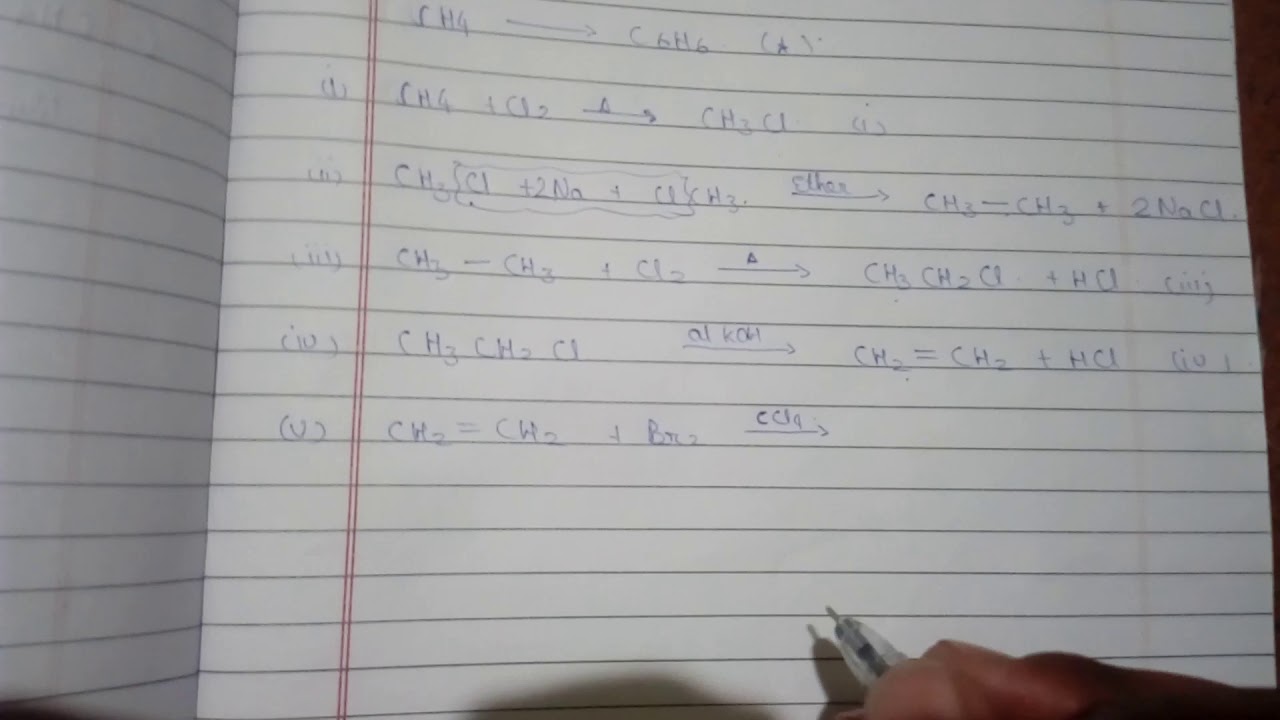 CH4 ⟶ C6H6 (A).
(i) CH4 + Cl2 Δ⟶ CH3Cl (i)
(ii) CH3 Cl + 2Na + Cl CH3. Ether⟶ CH3 — CH3 + 2NaCl.
(iii) CH3 — CH3 + Cl2 Δ⟶ CH3CH2Cl + HCl (iii)
(iv) CH3CH2Cl al KOH⟶ CH2 = CH2 + HCl (iv).
(v) CH2 = CH2 + Br2 CCl4⟶